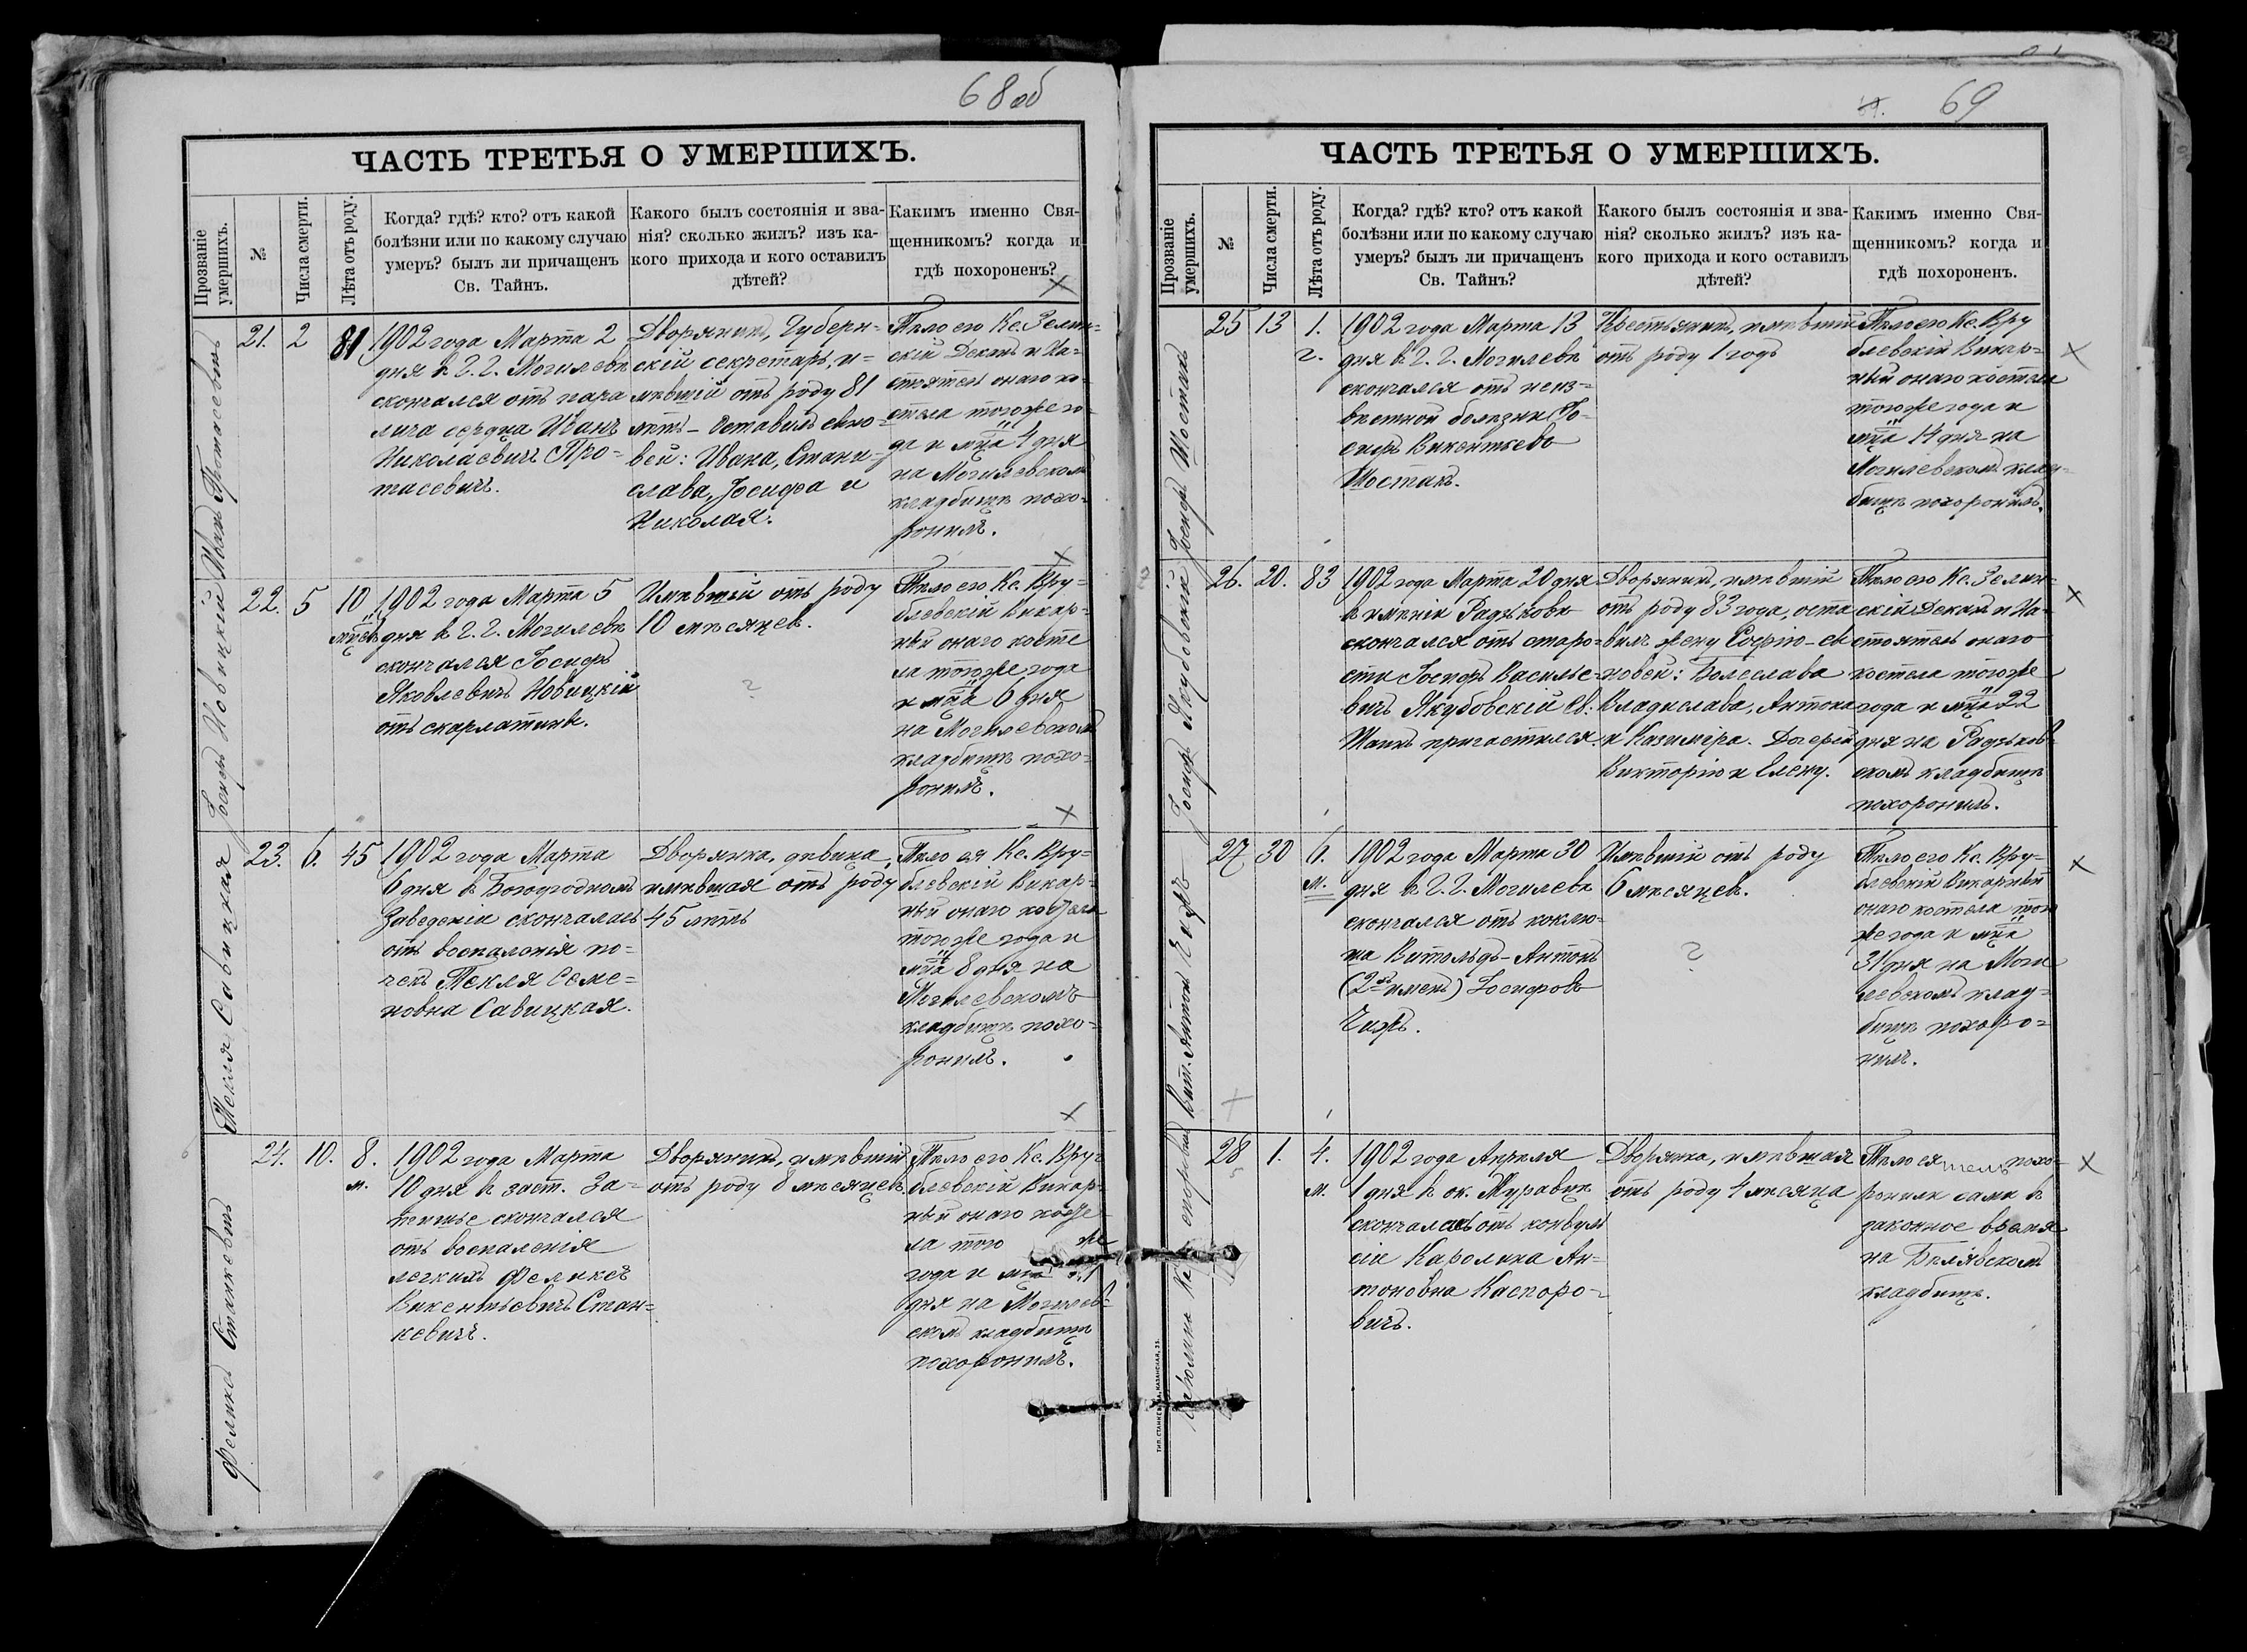 68 об
ЧАСТЬ ТРЕТЬЯ О УМЕРШИХЪ.
Прозваніе умершихъ.
№
Числа смерти.
Лѣта отъ роду.
Когда? гдѣ? кто? отъ какой
болѣзни или по какому случаю
умеръ? былъ ли причащенъ
Св. Тайнъ.
Какого былъ состоянія и зва-
нія? сколько жилъ? изъ ка-
кого прихода и кого оставилъ
дѣтей?
Какимъ именно Свя-
щенникомъ? когда и
гдѣ похороненъ?
Иванъ Протасевичъ
21.
2
81
1902 года Марта 2
дня въ г. г. Могилевѣ
скончался отъ пара
лича сердца Иванъ
Николаевичъ Про=
тасевичъ.
Дворянинъ, Губерн=
скій секретарь, и=
мѣвшій отъ роду 81
лѣтъ - Оставилъ сыно=
вей: Ивана, Стани=
слава, Іосифа и
Николая.
Тѣло его Кс. Зелин=
скій Деканъ и На=
стоятель онаго ко=
стела тогоже го=
да и мца 4 дня
на Могилевскомъ
кладбищѣ похо=
ронилъ.
Іосифъ Новицкій
22.
5
10
мцев
1902 года Марта 5
дня въ г. г. Могилевѣ
скончался Іосифъ
Яковлевичъ Новицкій
отъ скарлатины.
Имѣвшій отъ роду
10 мѣсяцев.
?
Тѣло его Кс. Вру=
блевскій Викар=
ный онаго косте
ла тогоже года
и мца 6 дня
на Могилевскомъ
кладбищѣ похо=
ронилъ.
Текля Савицкая
23.
6.
45
1902 года Марта
6 дня въ Богоугодномъ
Заведеніи скончалась
отъ воспаленія по=
чекъ Текля Семе=
новна Савицкая.
Дворянка, дѣвица,
имѣвшая отъ роду
45 лѣтъ
Тѣло ея Кс. Вру=
блевскій Викар=
ный онаго костела
тогоже года и
мца 8 дня на
Могилевскомъ
кладбищѣ похо=
ронилъ.
Феликсъ Станкевичъ
24.
10.
8.
м.
1902 года Марта
10 дня въ заст. За=
скончался
отъ воспаленія
легкихъ Феликсъ
Викентьевичъ Стан=
кевичъ.
Дворянинъ, имѣвшій
отъ роду 8 мѣсяцев.
Тѣло его Кс. Вру=
блевскій Викар=
ный онаго косте
ла того же
года и мца
дня на Могилев=
скомъ кладбищѣ
похоронилъ.
69
ЧАСТЬ ТРЕТЬЯ О УМЕРШИХЪ.
Прозваніе умершихъ.
№
Числа смерти.
Лѣта отъ роду.
Когда? гдѣ? кто? отъ какой
болѣзни или по какому случаю
умеръ? былъ ли причащенъ
Св. Тайнъ?
Какого былъ состоянія и зва-
нія? сколько жилъ? изъ ка-
кого прихода и кого оставилъ
дѣтей?
Какимъ именно Свя-
щенникомъ? когда и
гдѣ похороненъ.
Іосифъ Шостакъ
25
13
1.
г.
1902 года Марта 13
дня въ г. г. Могилевѣ
скончался отъ неиз=
вѣстной болѣзни Іо=
сифъ Викентьевъ
Шостакъ.
Крестьянинъ, имѣвшій
отъ роду 1 годъ
Тѣло его Кс. Вру
блевскій Викар=
ный онаго костела
тогоже года и
мца 14 дня на
Могилевскомъ клад=
бищѣ похоронилъ.
Іосифъ Якубовскій
26.
20.
83
1902 года Марта 20 дня
въ имѣніи Радьковѣ
скончался отъ старо=
сти Іосифъ Василье=
вичъ Якубовскій Св.
Таинъ причастился.
Дворянинъ, имѣвшій
отъ роду 83 года, оста
вилъ жену Софію - сы
новей: Болеслава
Владислава, Антона
и Казиміра. Дочерей
Викторію и Елену.
Тѣло его Кс. Зелин=
скій Деканъ и На=
стоятель онаго
костела тогоже
года и мца 22
дня на Радьков=
скомъ кладбищѣ
похоронилъ.
Вит. Антон Чижъ
27
30
6.
м.
1902 года Марта 30
дня въ г. г. Могилевѣ
скончался отъ коклю=
ша Витольдъ-Антонъ
(2хъ именъ) Іосифовъ
Чижъ.
Имѣвшій отъ роду
6 мѣсяцев.
?
Тѣло его Кс. Вру=
блевскій Викарный
онаго костела того
же года и мца
31 дня на Моги
левскомъ клад=
бищѣ похоро=
нилъ.
28
1.
4.
м.
1902 года Апрѣля
1 дня въ ок. Муравцѣ
скончалась отъ конвуль
сіи Каролина Ан=
тоновна Каспоро=
вичъ.
Дворянка, имѣвшая
отъ роду 4 мѣсяца
Тѣло ея похо=
ронили сами въ
законное время
на
кладбищѣ.
ТИП. СТАНКЕВИЧА, КАЗАНСКАЯ, 33.